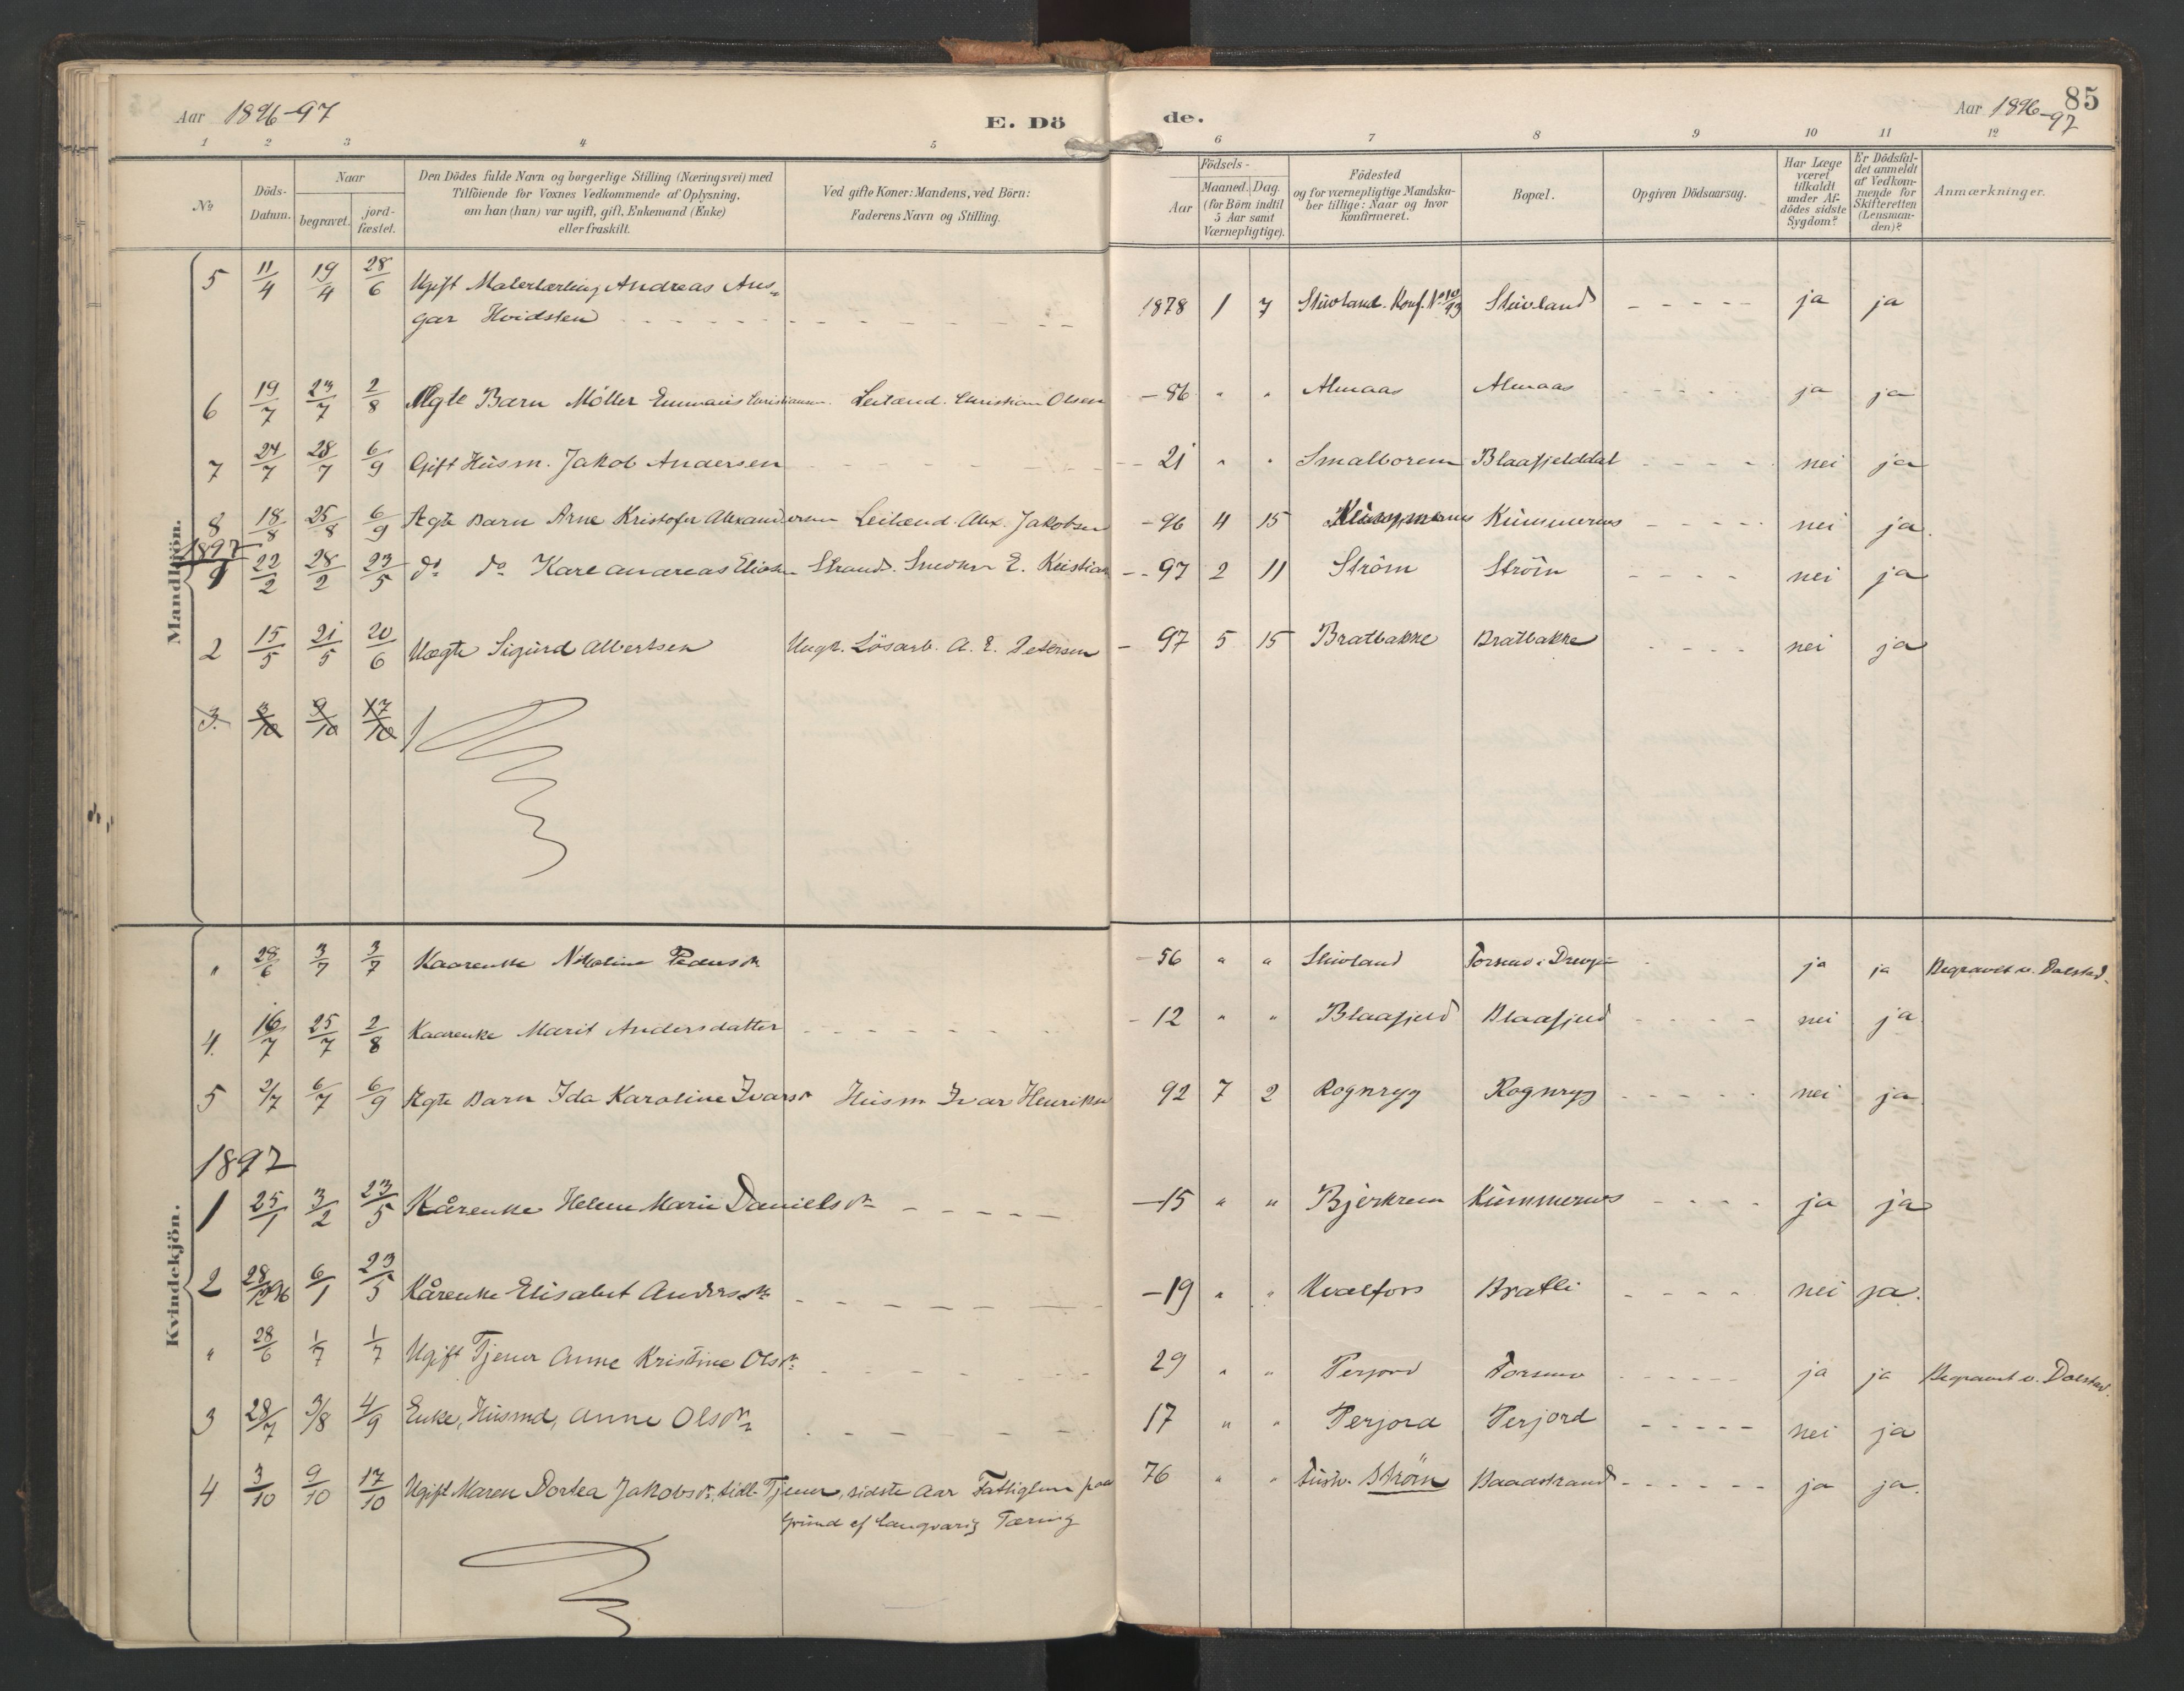 85
Aar 1896-97
E. Dö
de.
Aar 1896-97
1 2 3 4 5 6 7 8 9 10 11 12
No
Döds-
Datum.
Naar
begravet.
jord-
fæstet.
Den Dödes fulde Navn og borgerlige Stilling (Næringsvei) med
Tilföiende for Voxnes Vedkommende af Oplysning,
om han (hun) var ugift, gift, Enkemand (Enke)
eller fraskilt.
Ved gifte Koner: Mandens, ved Börn:
Faderens Navn og Stilling.
Födsels-
Aar
Maaned. Dag.
(for Börn indtil
5 Aar samt
Værnepligtige).
Födested
og for værnepligtige Mandska-
ber tillige: Naar og hvor
konfirmeret.
Bopæl.
Opgiven Dödsaarsag.
Har Læge
været
tilkaldt
under Af-
dödes sidste
Sygdom?
Er Dödsfal-
det anmeldt
af Vedkom-
mende for
Skifteretten
(Lensman-
den)?
Anmærkninger.
Mandkjön.
5 11/4 19/4 28/6 Ugift Malerlærling Andreas Ans- 1878 1 7 Konf. ja ja
gar Hvidsten
6 19/7 23/7 2/8 Ægte Barn Möller Emmaus Christiansen. Leilænd. Christian Olsen -86 " " Almaas Almaas ja ja
7 24/7 28/7 6/9 Gift Husm. Jakob Andersen -21 " " Smalborem Blaafjelddal nei ja
8 18/8 25/8 6/9 Ægte Barn Arne Kristofer Alexandersen Leilænd. Alex. Jakobsen -96 4 15 Kummernes nei ja.
1897
1 22/2 28/2 23/5 do do Kare Andreas Eliasen Strands. E. Kristian -97 2 11 Ström Ström nei ja
2 15/5 21/5 20/6 Uægte Sigurd Albertsen Ungk. Lösarb. A. E. Petersen -97 5 15 Bratbakke Bratbakke nei ja
3. 3/10 9/10 17/10
Kvindekjön.
" 28/6 3/7 3/7 Kaarenke Nikoline Pedersdr -56 " " ja ja Begravet v. Dolstad.
4. 16/7 25/7 2/8 Kaarenke Marit Andersdatter -12 " " Blaafjeld Blaafjeld nei ja
5 2/7 6/7 6/9 Ægte Barn Ida Karoline Ivarsdr Husm Ivar Henriksen 92 7 2 Rognryg Rognryg nei ja.
1897
1 25/1 3/2 23/5 Kårenke Helene Marie Danielsdr -15 " " Bjerkrem Kummernes ja ja
2 28/12 96 6/1 23/5 Kårenke Elisabet Andersdr -19 " " Kvalfors Bratli nei ja.
" 28/6 1/7 1/7 Ugift Tjener Anne Kristine Olsdr. 29 " " Perjord Forsmo ja ja Begravet v. Dolstad.
3 28/7 3/8 4/9 Enke, Husmd, Anne Olsdr 17 " " Perjord Perjord nei ja
4 3/10 9/10 17/10 Ugift Maren Dortea Jakobsdr, tidl. Tjener, sidste Aar Fattiglem paa 76 " " Ström Baadstrand ja ja.
Grund af langvarig Tæring